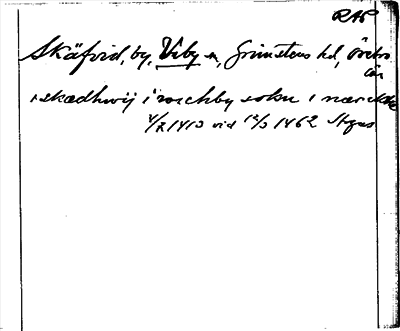 RAP
Skäfvid, by, Viby sn, Grimstens hd, Örebro
län
skædhwij i wichby sokn i nærchke
4/7 1413 vid 12/3 1462